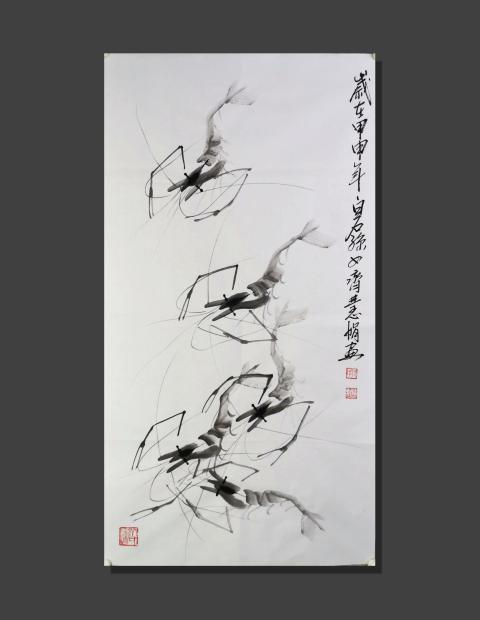 歲在甲申年白石孫女齊慧娟画